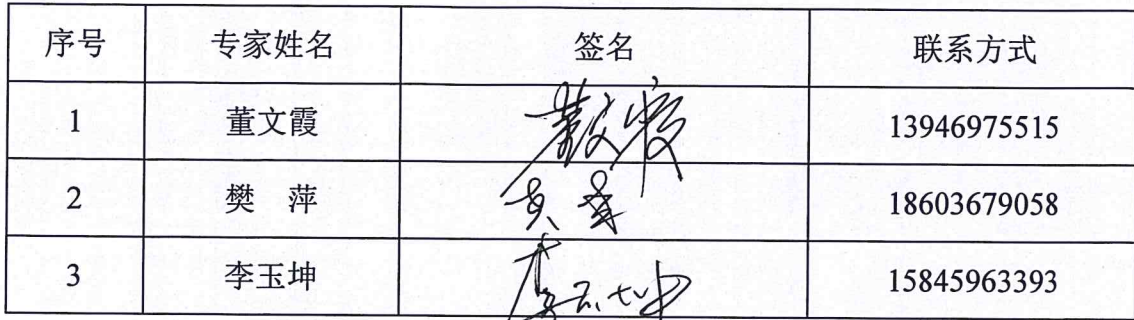 序号 专家姓名 签名 联系方式
1 董文霞 董文霞 13946975515
2 樊 萍 18603679058
3 李玉坤 李玉坤 15845963393